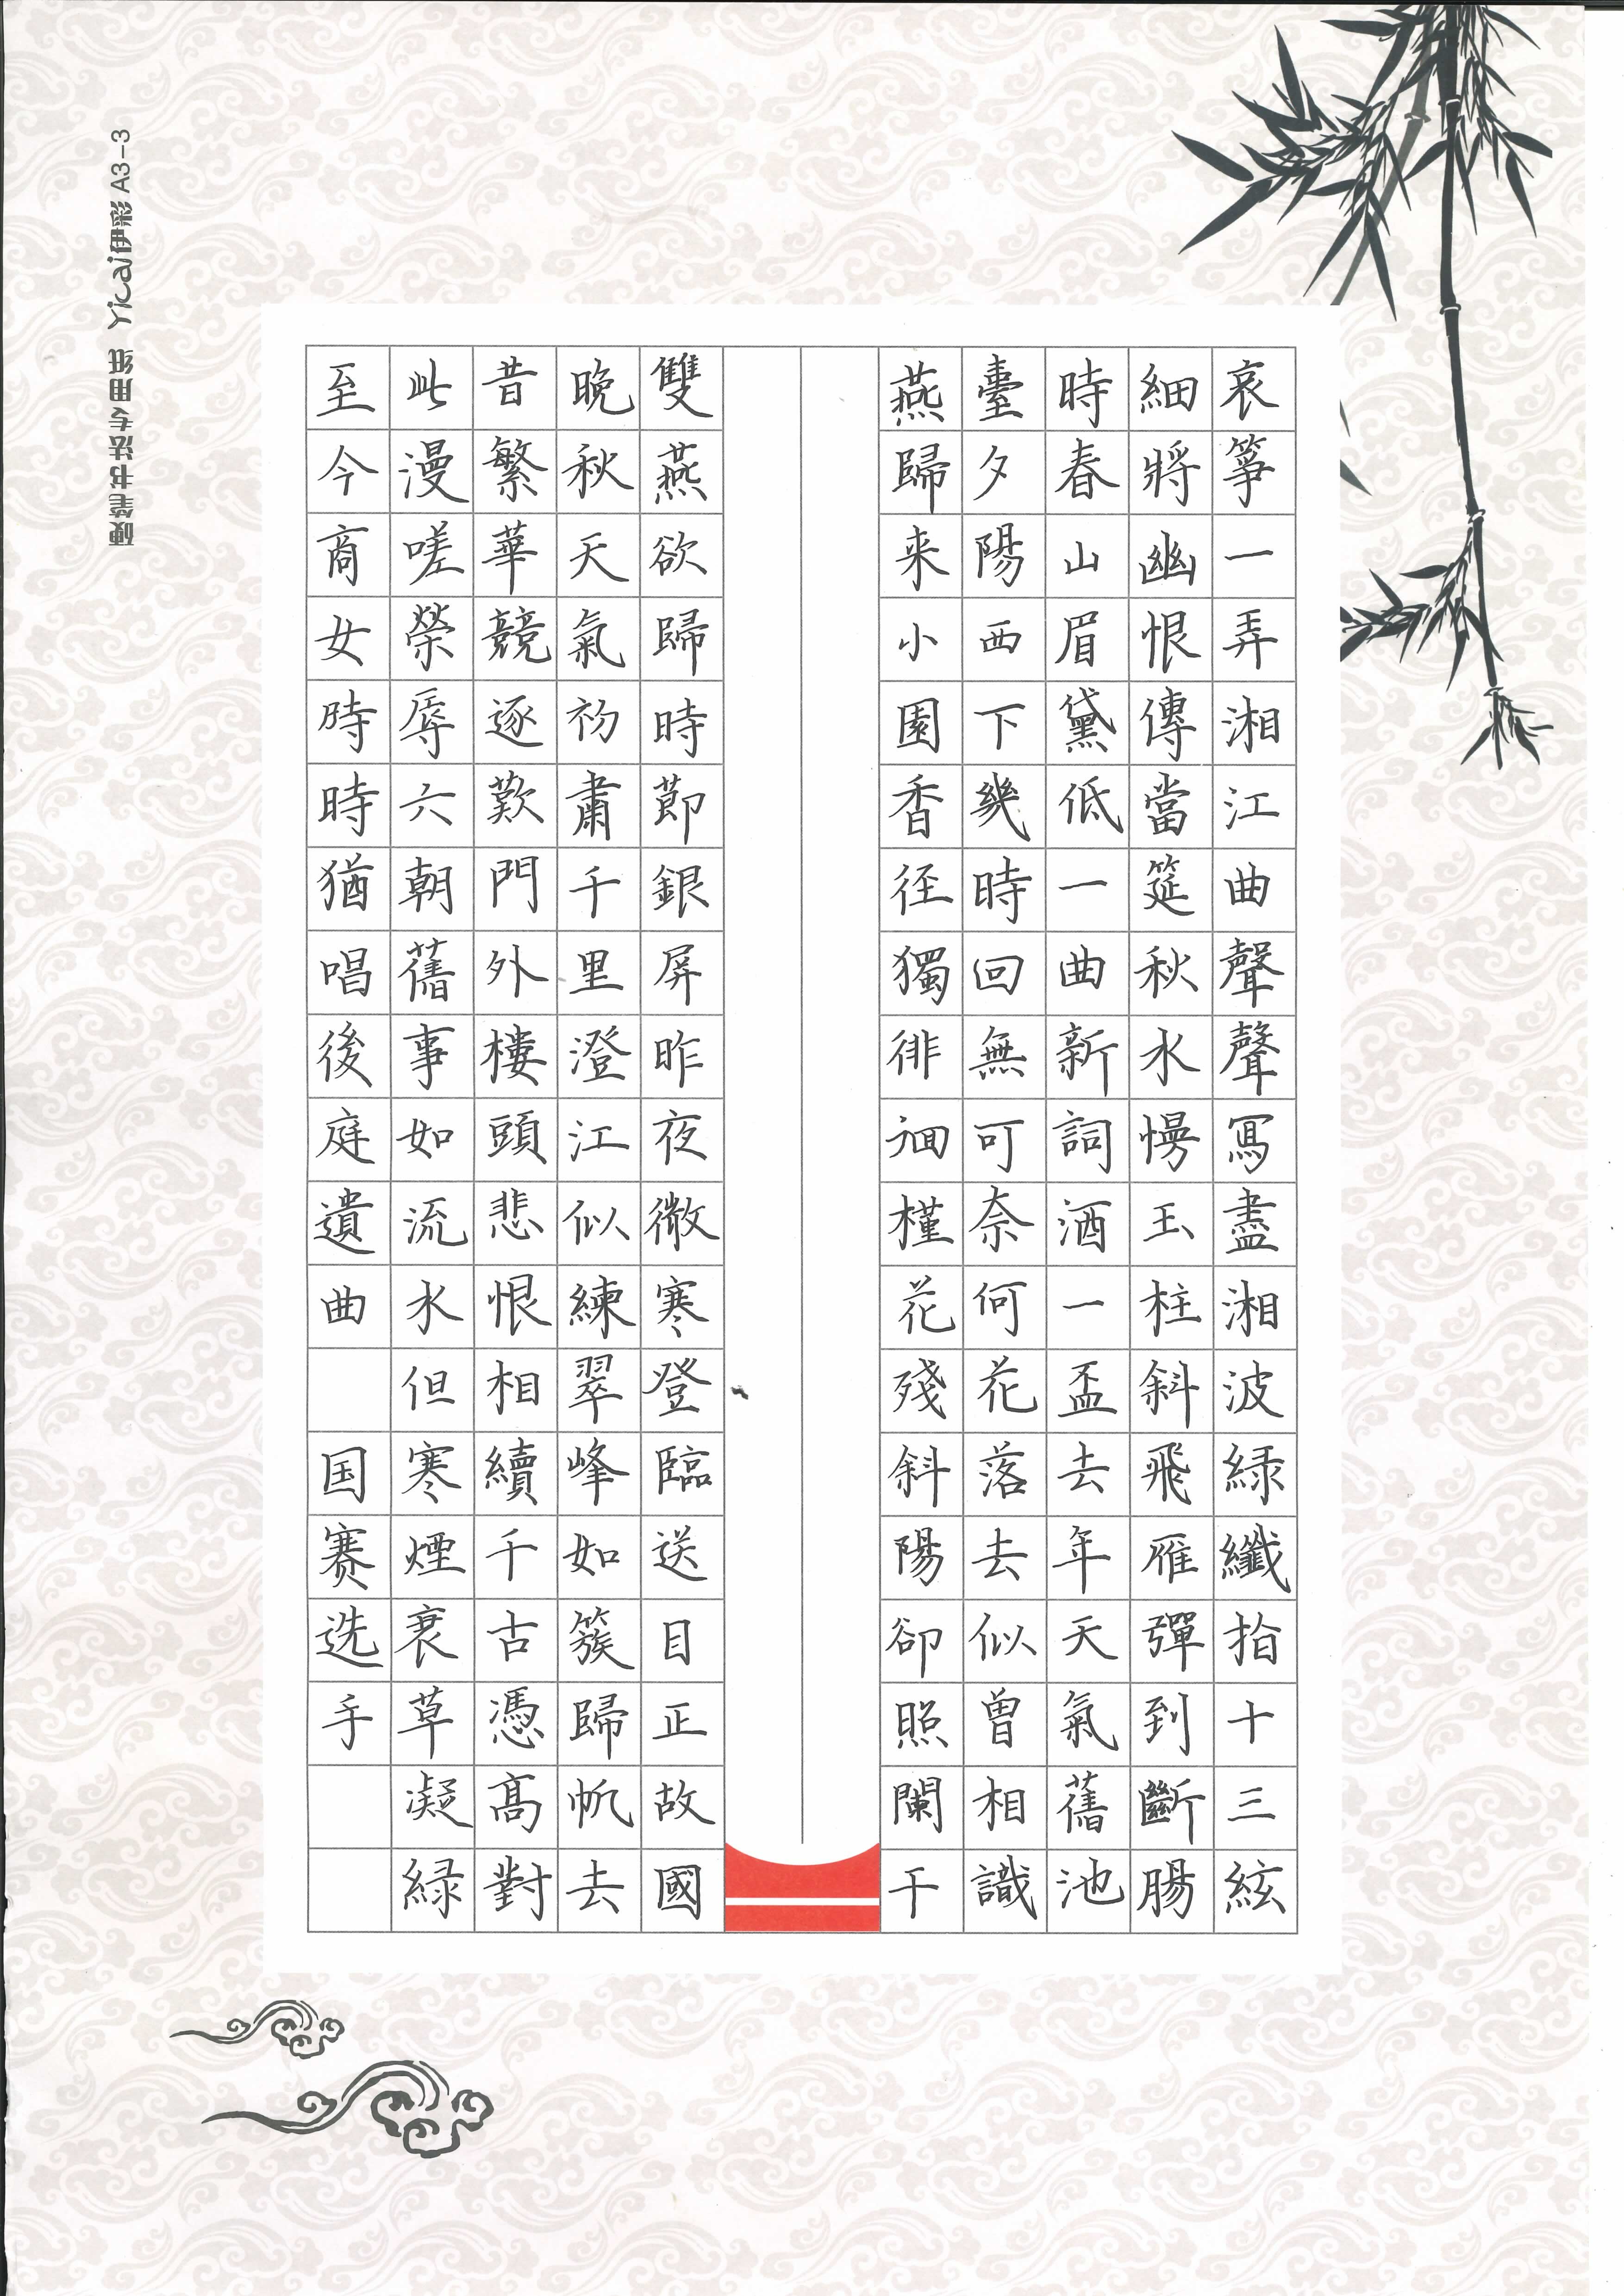 哀箏一弄湘江曲聲聲寫盡湘波緑纖指十三絃
細將幽恨傳當筵秋水慢玉柱斜飛雁彈到斷腸
時春山眉黛低一曲新詞酒一盃去年天氣舊池
臺夕陽西下幾時回無可奈何花落去似曾相識
燕歸来小園香徑獨徘徊槿花殘斜陽卻照闌干
雙燕欲歸時節銀屏昨夜微寒登臨送目正故國
晚秋天氣初肅千里澄江似練翠峰如簇歸帆去
昔繁華競逐歎門外樓頭悲恨相續千古憑高對
此漫嗟榮辱六朝舊事如流水但寒煙衰草凝緑
至今商女時時猶唱後庭遺曲 国赛选手
硬笔书法专用纸 Yicai伊彩 A3-3